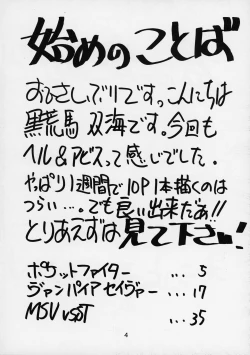 始めのことば
おひさしぶりですっこんにちは
黒荒馬 双海です。今回も
ヘル&アビスって感じでした.
やっぱり1週間で10P1本描くのは
つらい…。でも良い出来だぁ!!
とりあえずは見て下さい!
ポケットファイター … 5
ヴァンパイアセイヴァー … 17
MSU vs ST … 35
4